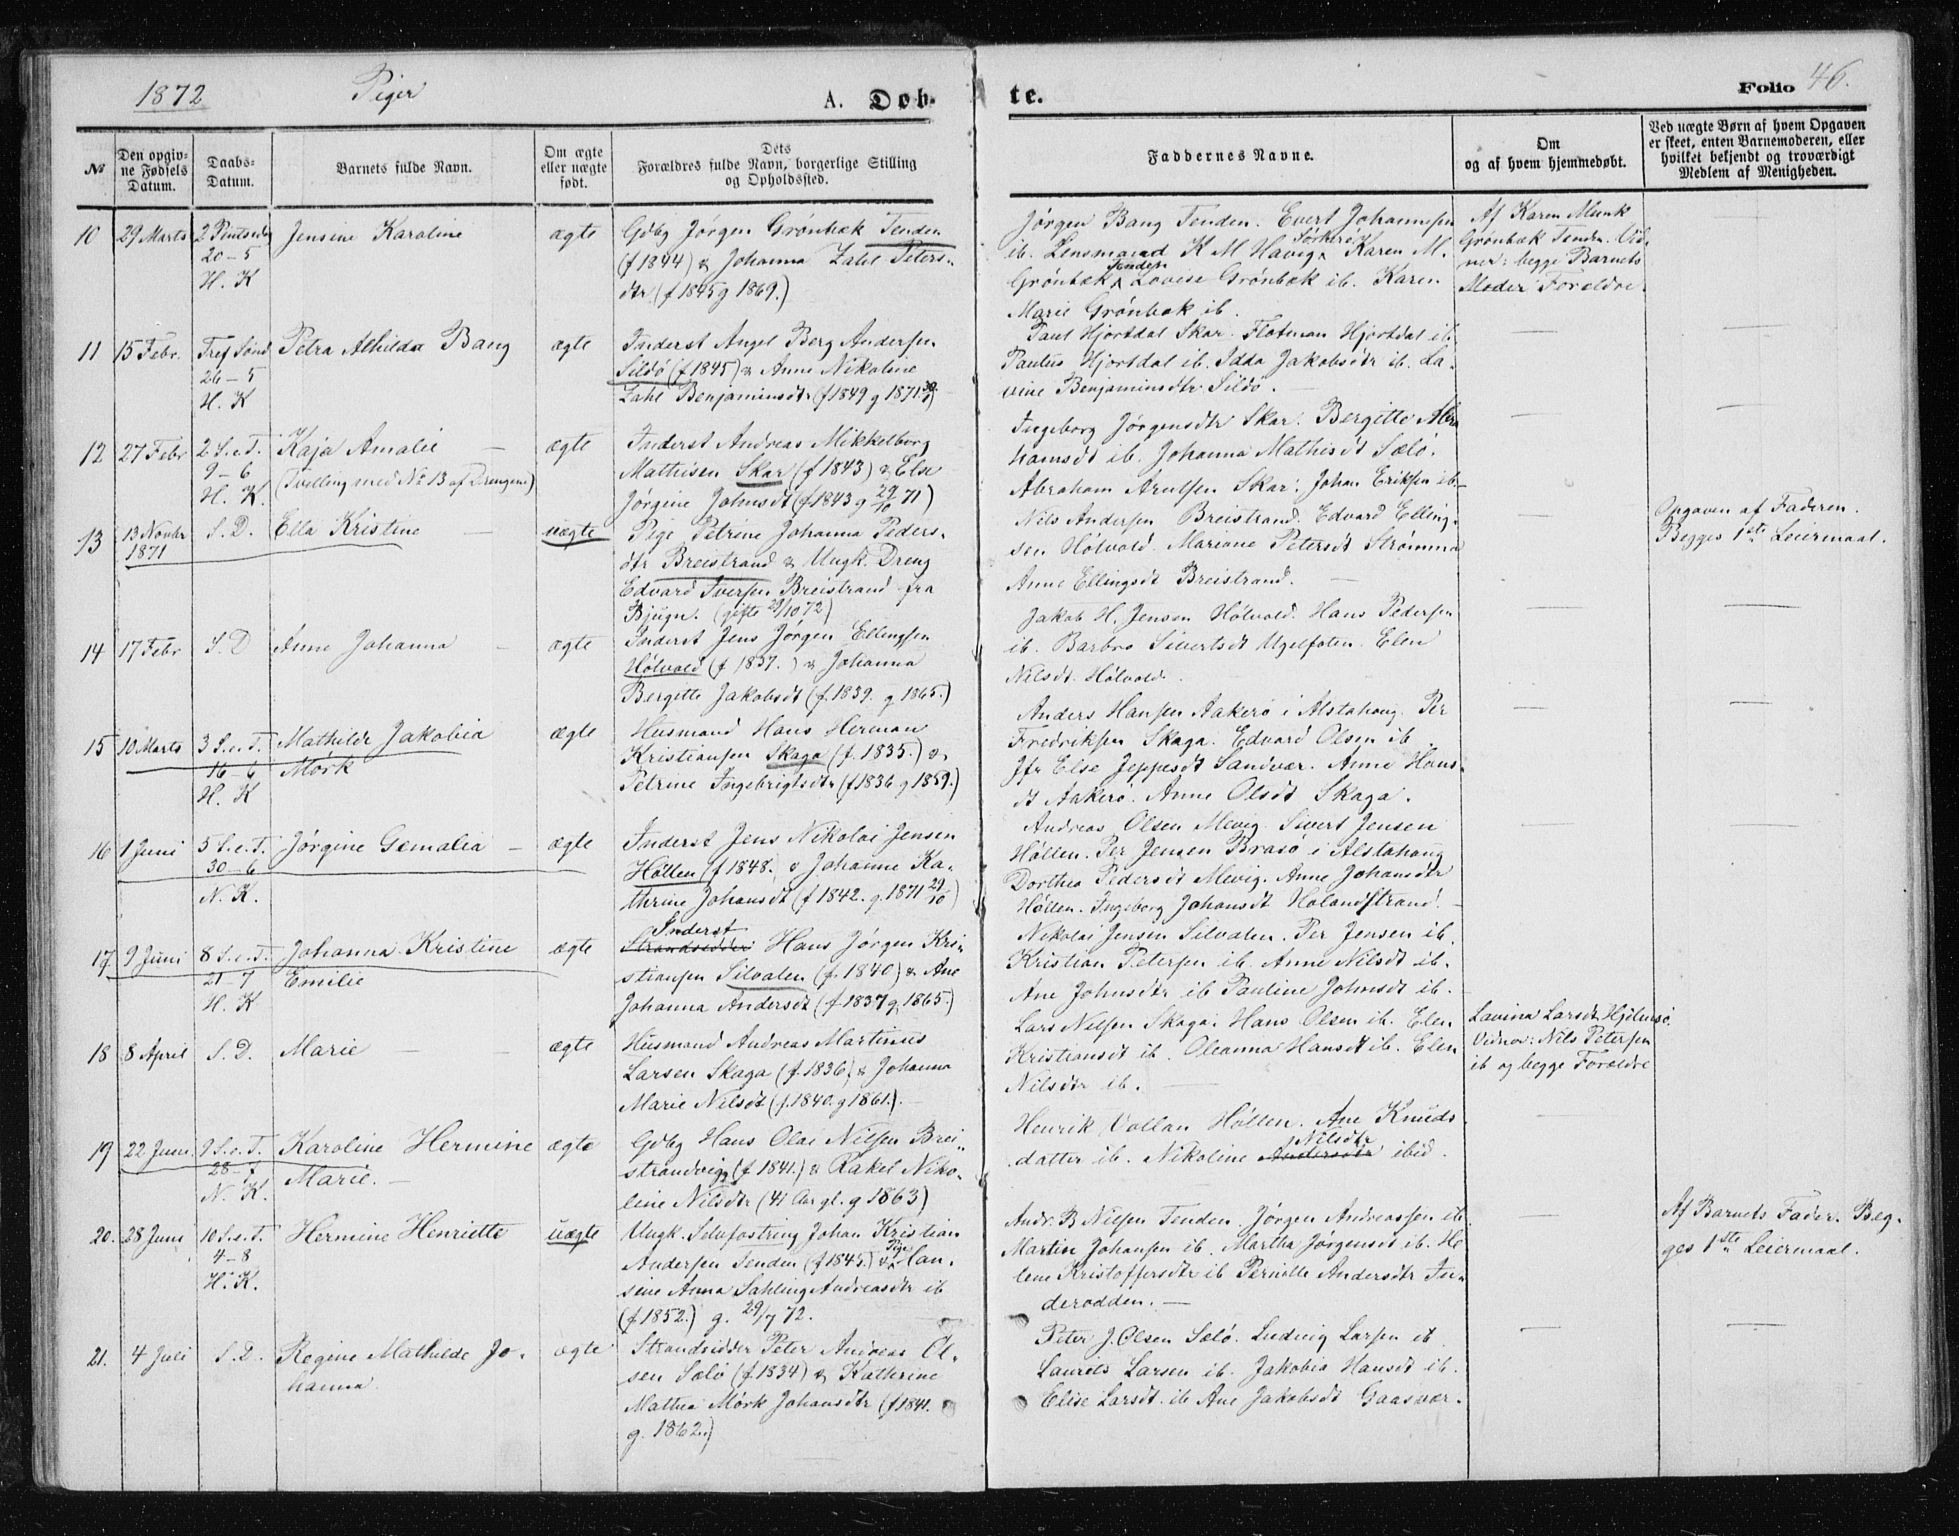 1872 Piger A. Døb-
te. Folio 46.
№
Den opgiv-
ne Fødsels
Datum.
Daabs-
Datum.
Barnets fulde Navn.
Om ægte
eller uægte
født.
Dets
Forældres fulde Navn, borgerlige Stilling
og Opholdssted.
Faddernes Navne.
Om
og af hvem hjemmedøbt.
Ved uægte Børn af hvem Opgaven
er skeet, enten Barnemoderen, eller
hvilket bekjendt og troværdigt
Medlem af Menigheden.
10
29 Marts
2 Pintsedag
20-5
H. K
Jensine Karoline
ægte
Gdbg Jørgen Grønbæk Tenden
(f 1844) & Johanna Zahl Peters-
dtr. (f 1845 g 1869.)
Jørgen Bang Tenden. Evert Johannesen
ib. Lensmand K M Havig Karen M.
Grønbæk Tenden Lovise Grønbæk ib. Karen
Marie Grønbæk ib.
Af Karen Munk
Grønbæk Tenden. Vid-
ner: begge Barnets
Moder Forældre
11
15 Febr.
Tref Sønd
26-5
H. K
Petra Alhilda Bang
ægte
Inderst Angel Berg Andersen
Sildø (f 1845) & Anne Nikoline
Zahl Benjaminsdtr (f 1849 g 1871
Paul Hjortdal Skar. Flotman Hjortdal ib.
Paulus Hjortdal ib. Idda Jakobsdtr ib. La-
vine Benjaminsdtr Sildø.
—
—
12
27 Febr
2 S.e.T.
9-6
H. K.
Kaja Amalie —
(Tvilling med No 13 af Drengene)
ægte
Inderst Andreas Mikkelborg
Mathisen Skar (f 1843) & Else
Jørgine Johnsdt (f 1843 g 29/10 71)
Ingeborg Jørgensdtr Skar. Bergitte Abra
hamsdt ib. Johanna Mathisdt Sælø.
Abraham Arntsen Skar. Johan Eriksen ib.
—
—
13
13 Novbr
1871
S. D.
Ella Kristine —
uægte
Pige Petrine Johanna Peders-
dtr Breistrand & Ungk. Dreng
Edvard Iversen Breistrand fra
Bjugn. (gifte 29/10 72)
Nils Andersen Breistrand. Edvard Elling-
sen Hølvold. Mariane Petersdt Strømmen
Anne Ellingsdt Breistrand. —
—
Opgaven af Faderen.
Begges 1ste Leiermaal.
14
17 Febr
S. D
Anne Johanna —
ægte
Inderst Jens Jørgen Ellingsen
Hølvold (f 1837.) & Johanna
Bergitte Jakobsdt (f. 1839. g 1865.)
Jakob H. Jensen Hølvold. Hans Pedersen
ib. Barbro Sivertsdt Ugelfoten. Elen
Nilsdt. Hølvold.
—
—
15
10 Marts
3 S.e.T.
16-6
H. K
Mathilde Jakobia
Mørk
ægte
Husmand Hans Herman
Kristiansen Skaga (f. 1835.) &
Petrine Ingebrigtsdtr (f 1836 g 1859.)
Anders Hansen Aakerø i Alstahoug. Per
Fredriksen Skaga. Edvard Olsen ib.
Jfr Else Jeppesdt Sandvær. Anne Hans-
dt Aakerø. Anne Olsdt Skaga.
—
—
16
1 Juni
5 S.e.T.
30-6
N. K.
Jørgine Gemalia —
ægte
Inderst Jens Nikolai Jensen
Høllen (f 1848.) & Johanne Ka-
thrine Johansdt (f 1842. g. 1871 29/10)
Andreas Olsen Mevig. Sivert Jensen
Høllen. Per Jensen Brasø i Alstahaug
Dorthea Pedersdt Mevig. Anne Johansdtr
Høllen. Ingeborg Johansdt Holandstrand. —
17
9 Juni
8 S.e.T.
21-7
H. K
Johanna Kristine
Emilie
ægte
Inderst
Strandsidder Hans Jørgen Kri-
stiansen Silvalen (f. 1840) & Ane
Johanna Andersdt (f 1837 g. 1865.)
Nikolai Jensen Silvalen. Per Jensen ib.
Kristian Petersen ib. Anne Nilsdt ib.
Ane Johnsdtr ib Pauline Johnsdt ib.
18
8 April
S. D.
Marie — —
ægte
Husmand Andreas Martinus
Larsen Skaga (f. 1836) & Johanna
Marie Nilsdt (f. 1840. g 1861.) —
Lars Nilsen Skaga. Hans Olsen ib. Elen
Kristiansdt ib. Oleanna Hansdt ib. Elen
Nilsdtr ib. —
Lavina Larsdt Hjelmsø.
Vidner: Nils Petersen
ib og begge Forældre
19
22 Juni
9 S.e.T.
28-7
N. K.
Karoline Hermine
Marie. —
ægte
Gdbg Hans Olai Nilsen Brei-
strandvig (f 1841.) & Rakel Niko-
line Nilsdtr (41 Aar gl. g 1863)
Henrik Vollan Høllen. Ane Knuds-
datter ib. Nikoline Andersdtr Nilsdtr ibid.
—
20.
28 Juni
10 S.e.T.
4-8
H. K.
Hermine Henriette
uægte
Ungk. Selvfostring Johan Kristian
Andersen Tenden (f 1845.) & Pige Han-
sine Anna Sahling Andreasdtr ib
(f 1852.) g. 29/7 72.
Andr. B Nilsen Tenden. Jørgen Andreassen ib
Martin Johansen ib. Martha Jørgensdt ib. He-
lene Kristoffersdtr ib Pernille Andersdtr In-
derodden. —
—
Af Barnets Fader. Beg-
ges 1ste Leiermaal.
21.
4 Juli
S. D.
Regine Mathilde Jo-
hanna.
ægte
Strandsidder Peter Andreas Ol-
sen Sælø (f 1834) & Kathrine
Mathea Mørk Johansdtr (f 1841.
g. 1862.)
Peter J. Olsen Sælø. Ludvig Larsen ib
Laurits Larsen ib. Jakobia Hansdt ib.
Elise Larsdt. ib Ane Jakobsdt Gaasvær.
—
—